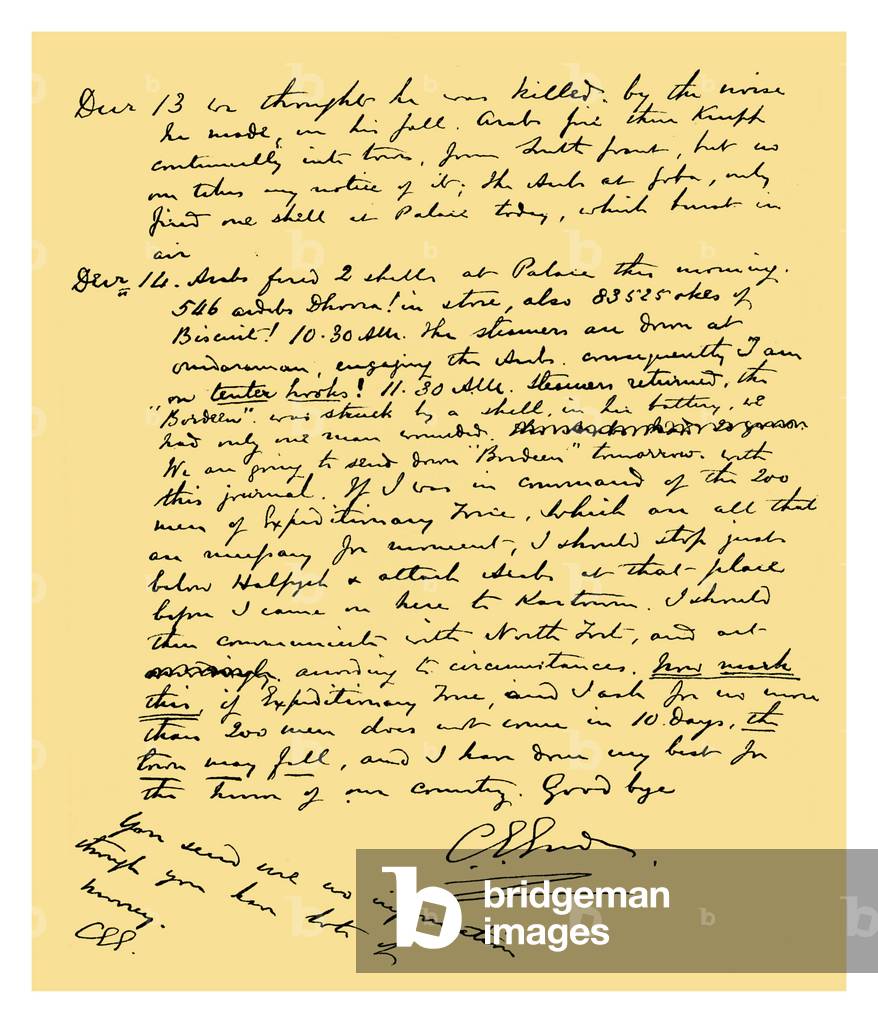 Decr 13 we thought he was killed. by the noise
he made, in his fall. Arabs fire their Krupp
continually into town, from South front, but no
one takes any notice of it; the Arabs at Goba, only
fired one shell at Palace today, which burst in
air
Decr 14. Arabs fired 2 shells at Palace this morning.
546 ardebs Dhoora! in store, also 83525 okes of
Biscuit! 10.30 AM. The steamers are down at
Omdurman, engaging the Arabs. consequently I am
on tenter hooks! 11.30 AM. Steamers returned, the
"Bordeen" was struck by a shell, in her battery, we
had only one man wounded.
We are going to send down "Bordeen" tomorrow. with
this journal. If I was in command of the 200
men of Expeditionary Force, which are all that
are necessary for moment, I should stop just
below Halfyeh & attack Arabs at that place
before I came on here to Kartoum. I should
then communicate with North Fort, and act
according to circumstances. Now mark
this, if Expeditionary Force, and I ask for no more
than 200 men does not come in 10 days, the
town may fall, and I have done my best for
the honor of our country. Good bye
C. G. Gordon
You send me no information
though you have lots of
money.
CGG.
bridgeman
images